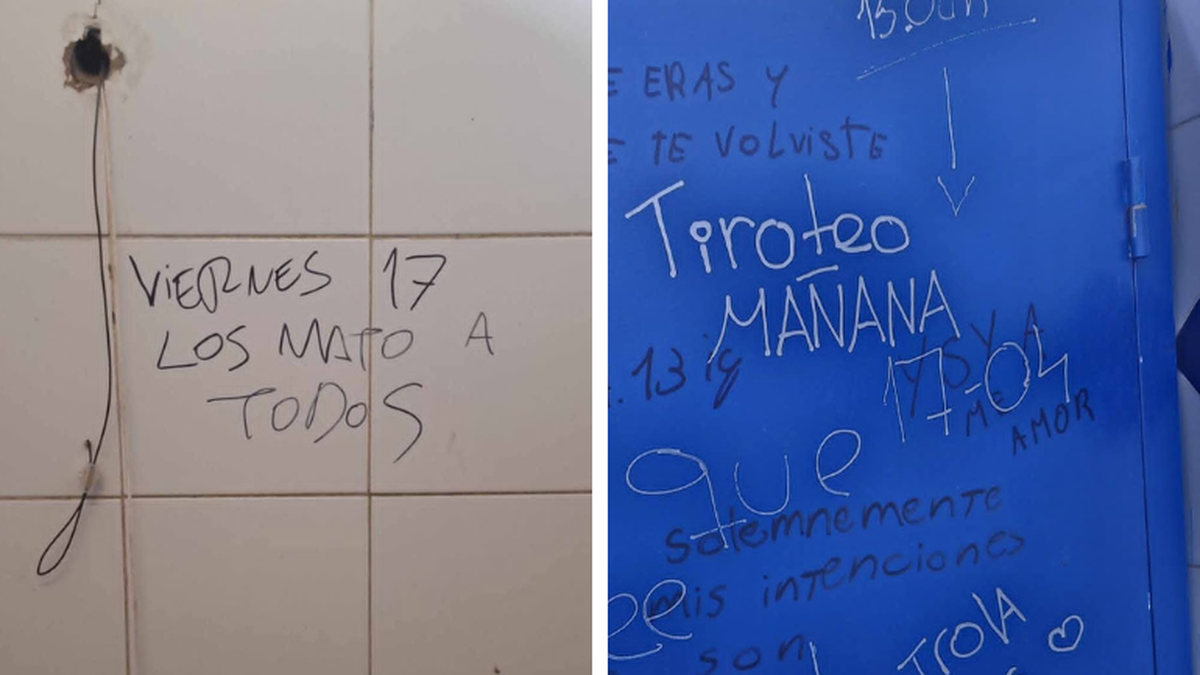 VIERNES 17
LOS MATO A
TODOS
E ERAS Y
E TE VOLVISTE
Tiroteo
MAÑANA
17-04
13 ig
Y
ME
AMOR
que
solemnemente
mis intenciones
son